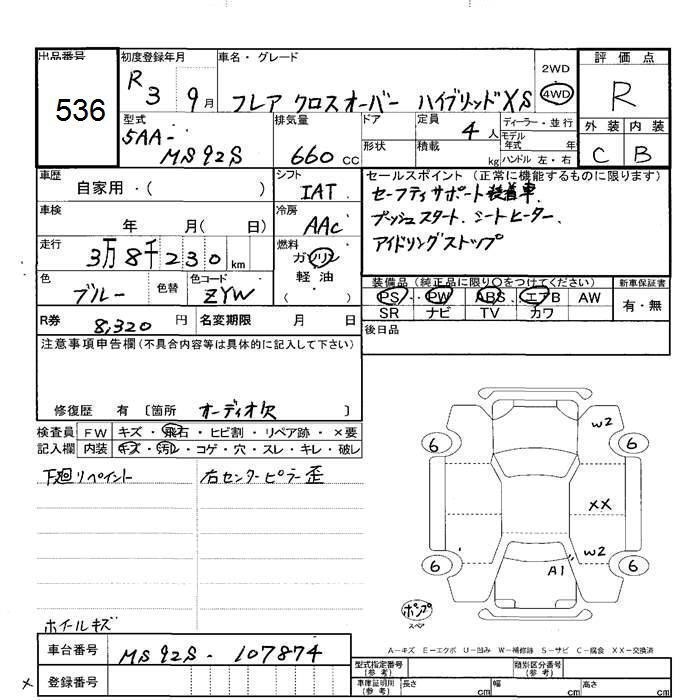 出品番号 初度登録年月 車名・グレード 2WD 評価点
536 R3 9月 フレア クロスオーバー ハイブリッドXS 4WD R
型式 排気量 ドア 定員 ディーラー・並行 外装 内装
5AA-MS92S 660cc 4人 モデル年式 年
形状 積載 kg ハンドル 左・右 C B
車歴 自家用・( ) シフト IAT セールスポイント(正常に機能するものに限ります)
セーフティサポート装着車.
車検 年 月( 日) 冷房 AAC プッシュスタート、シートヒーター、
走行 3万8千230km 燃料 ガソリン 軽油 ( ) アイドリングストップ
色 ブルー 色替 色コード ZYW 装備品(純正品に限り○をつけてください) 新車保証書
PS PW ABS エアB AW 有・無
SR ナビ TV カワ
R券 8,320円 名変期限 月 日 後日品
注意事項申告欄(不具合内容等は具体的に記入して下さい)
修復歴 有 〔箇所 オーディオ欠 〕
検査員 FW キズ・飛石・ヒビ割・リペア跡・×要
記入欄 内装 キズ・汚レ・コゲ・穴・スレ・キレ・破レ
下廻リペイント 右センターピラー歪
W2
6 6
XX
W2
6 A1 6
ポンプ
スペア
ホイールキズ
A－キズ E－エクボ U－凹み W－補修跡 S－サビ C－腐食 XX－交換済
車台番号 MS92S-107874
型式指定番号(参考) 類別区分番号(参考)
× 登録番号 車庫証明用(参考) 長さ cm 幅 cm 高さ cm